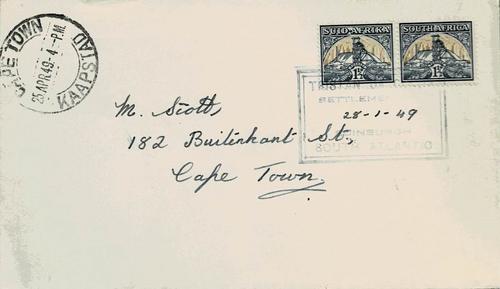 CAPE TOWN
25 APR 49 - 4 - P.M.
KAAPSTAD
SUID-AFRIKA
1½D
SOUTH AFRICA
1½D
TRISTAN
SETTLEMENT
28-1-49
EDINBURGH
SOUTH ATLANTIC
M. Scott,
182 Buitenkant St,
Cape Town.